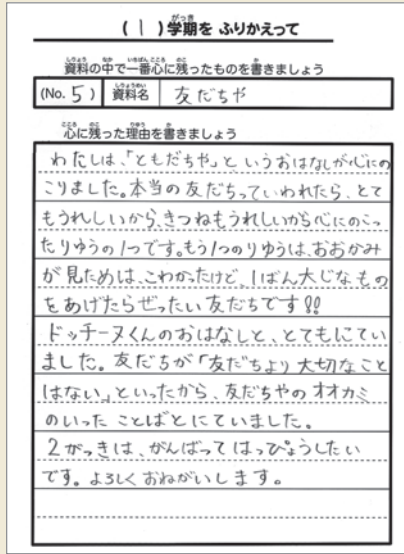 (1)学期を ふりかえって
資料の中で一番心に残ったものを書きましょう
(No. 5) 資料名 友だちや
心に残った理由を書きましょう
わたしは、「ともだちや」と、いうおはなしが心にの
こりました。本当の友だちっていわれたら、とて
もうれしいから、きつねもうれしいから心にのこっ
たりゆうの1つです。もう1つのりゆうは、おおかみ
が見ためは、こわかったけど、1ばん大じなもの
をあげたらぜったい友だちです!!
ドッチーヌくんのおはなしと、とてもにてい
ました。友だちが「友だちより大切なこと
はない」といったから、友だちやのオオカミ
のいった ことばとにていました。
2がっきは、がんばってはっぴょうしたい
です。よろしくおねがいします。